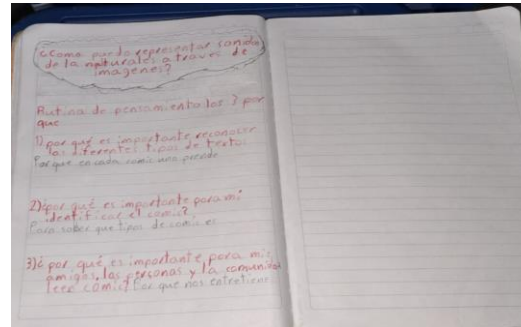 ¿Como puedo representar sonidos
de la naturales a traves de
imagenes?
Rutina de pensamiento los 3 por
que
1) por qué es importante reconocer
los diferentes tipos de textos
Porque en cada comic uno prende
2) ¿por qué es importante para mi
identificar el comic?
Para saber que tipos de comic es
3) ¿por qué es importante para mis
amigos, las personas y la comunidad
leer comic? Por que nos entretiene